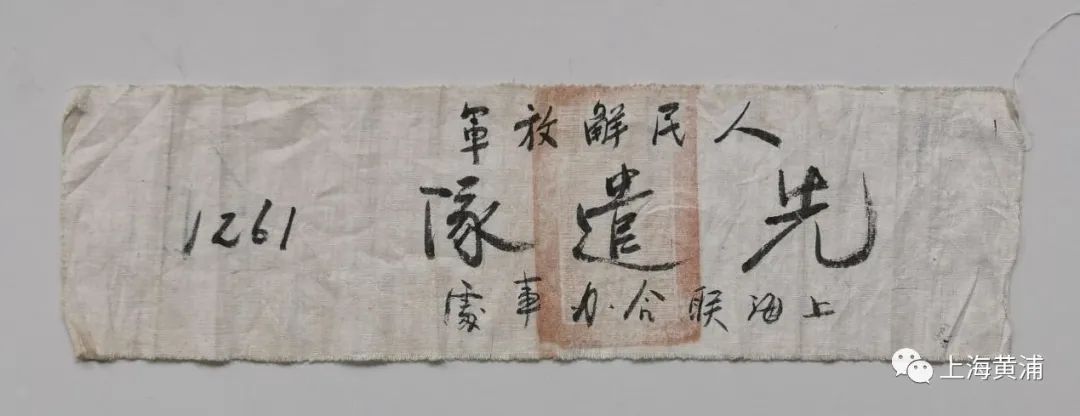 人民解放軍
先遣隊
上海联合办事處
1261
上海黄浦